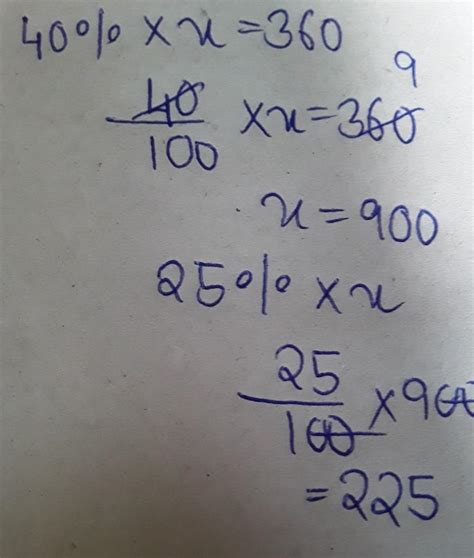 40% × x = 360
9
40/100 × x = 360
x = 900
25% × x
25/100 × 900
= 225